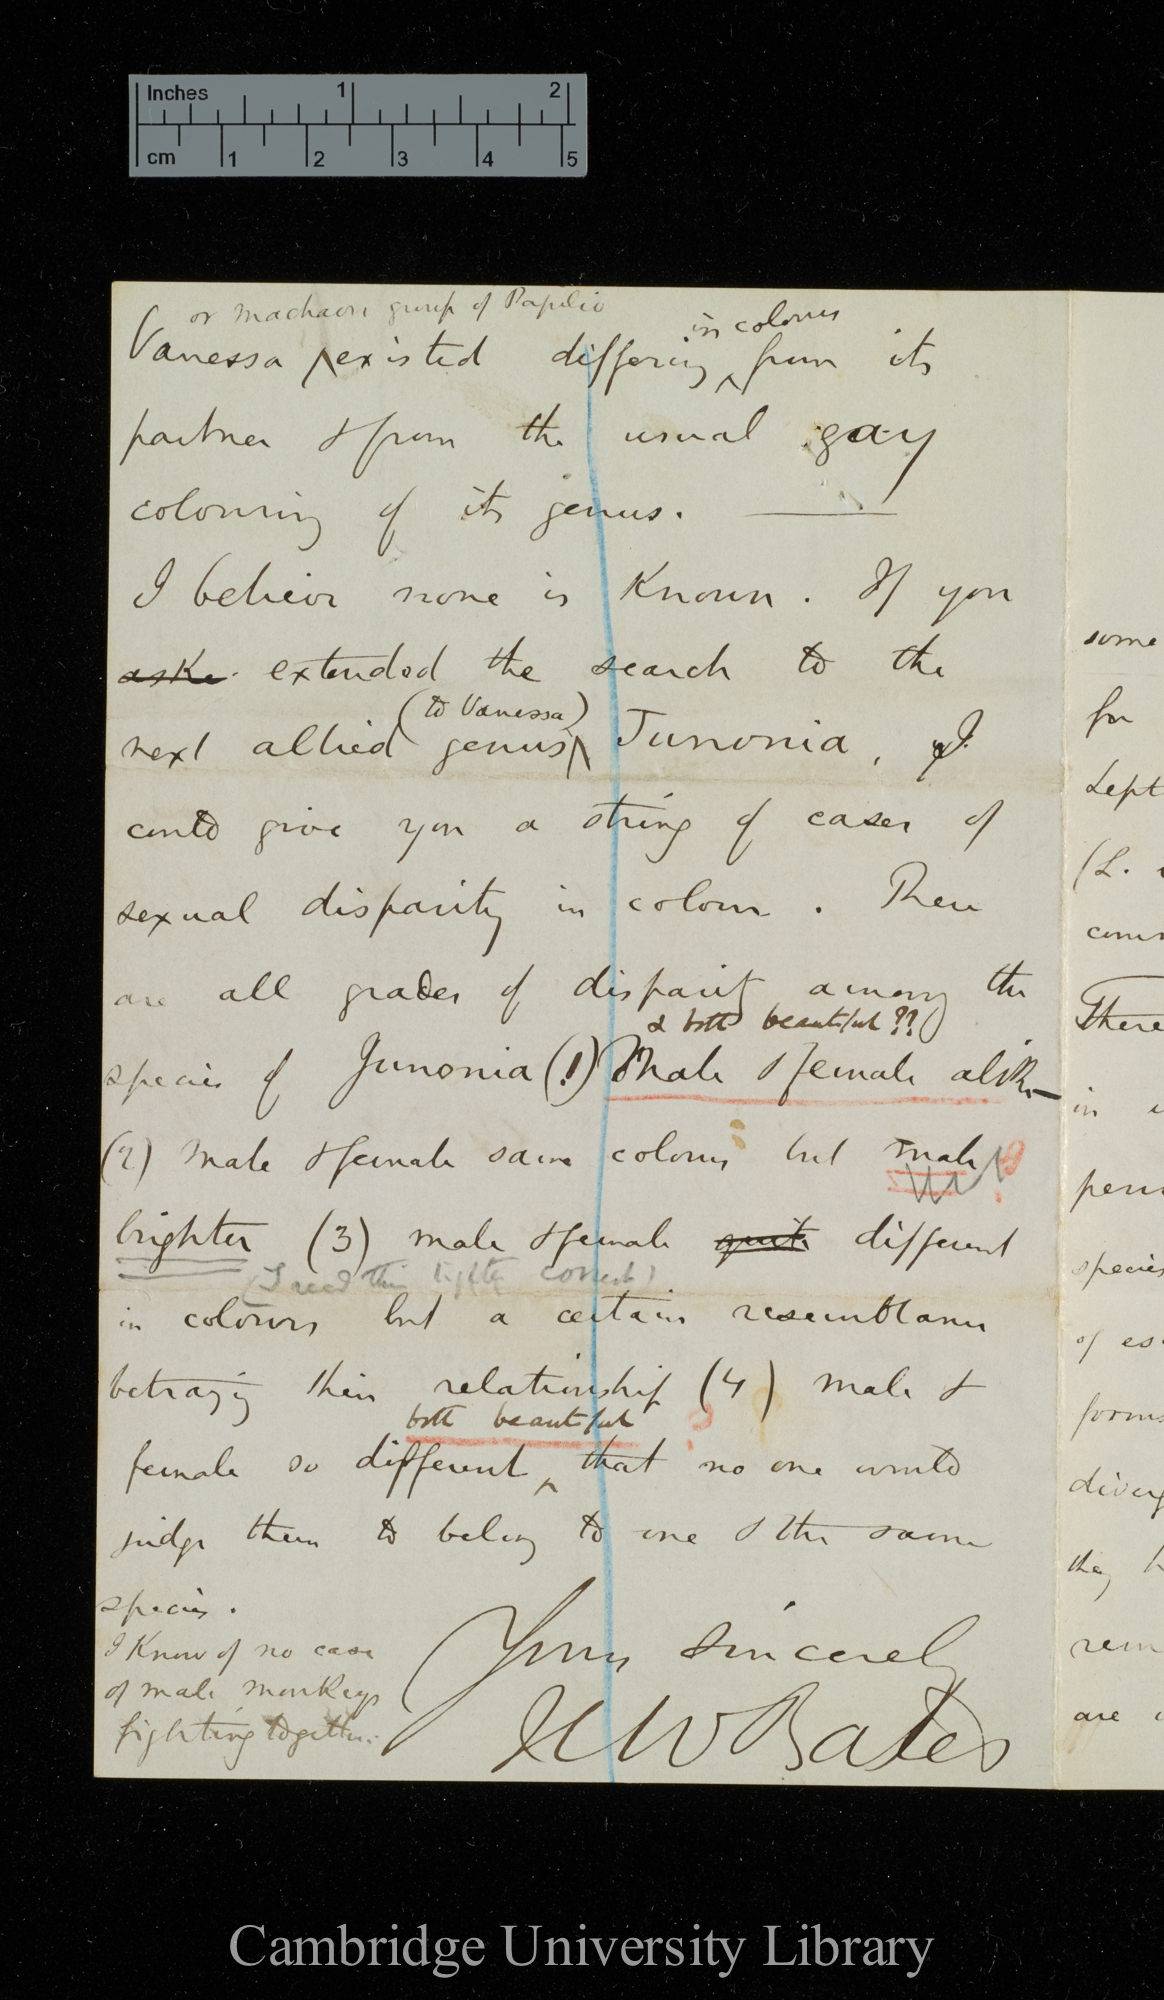 Inches 1 2
cm 1 2 3 4 5
or Machaon group of Papilio
in colours
Vanessa existed differing from its
partner & from the usual gay
colouring of its genus. ———
I believe none is known. If you
aske extended the search to the
(to Vanessa)
next allied genus Junonia, I
could give you a string of cases of
sexual disparity in colour. There
are all grades of disparity among the
& both beautiful??
species of Junonia (1) Male & female alike—
(2) male & female same colours but male
brighter (3) male & female quite different
(I read this lighter correct)
in colours but a certain resemblance
betraying their relationship (4) male &
both beautiful ?
female so different, that no one would
judge them to belong to one & the same
species.
I know of no case
of male monkeys
fighting together.
Yours sincerely
H W Bates
some
for
Lept
(L.
There
in
species
of es
forms
diverg
they
are
Cambridge University Library